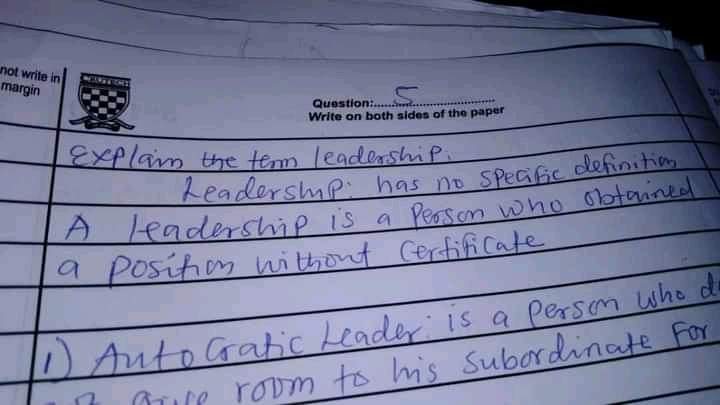 not write in
margin
CRUTECH
Question:....5....
Write on both sides of the paper
Explain the term leadership.
Leadership: has no specific definition
A leadership is a person who obtained
a position without certificate
1) Autocratic Leader: is a person who
give room to his subordinate for